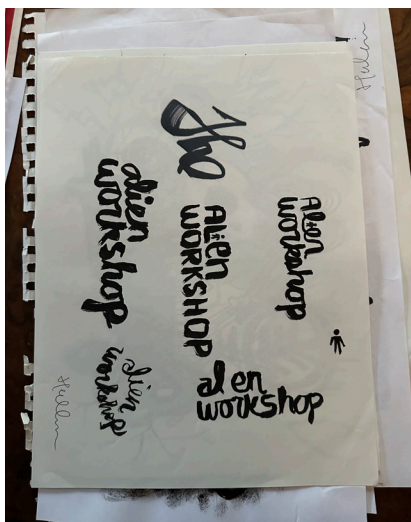 Alien
workshop
The
Alien
WORKSHOP
al en
workshop
alien
workshop
alien
workshop